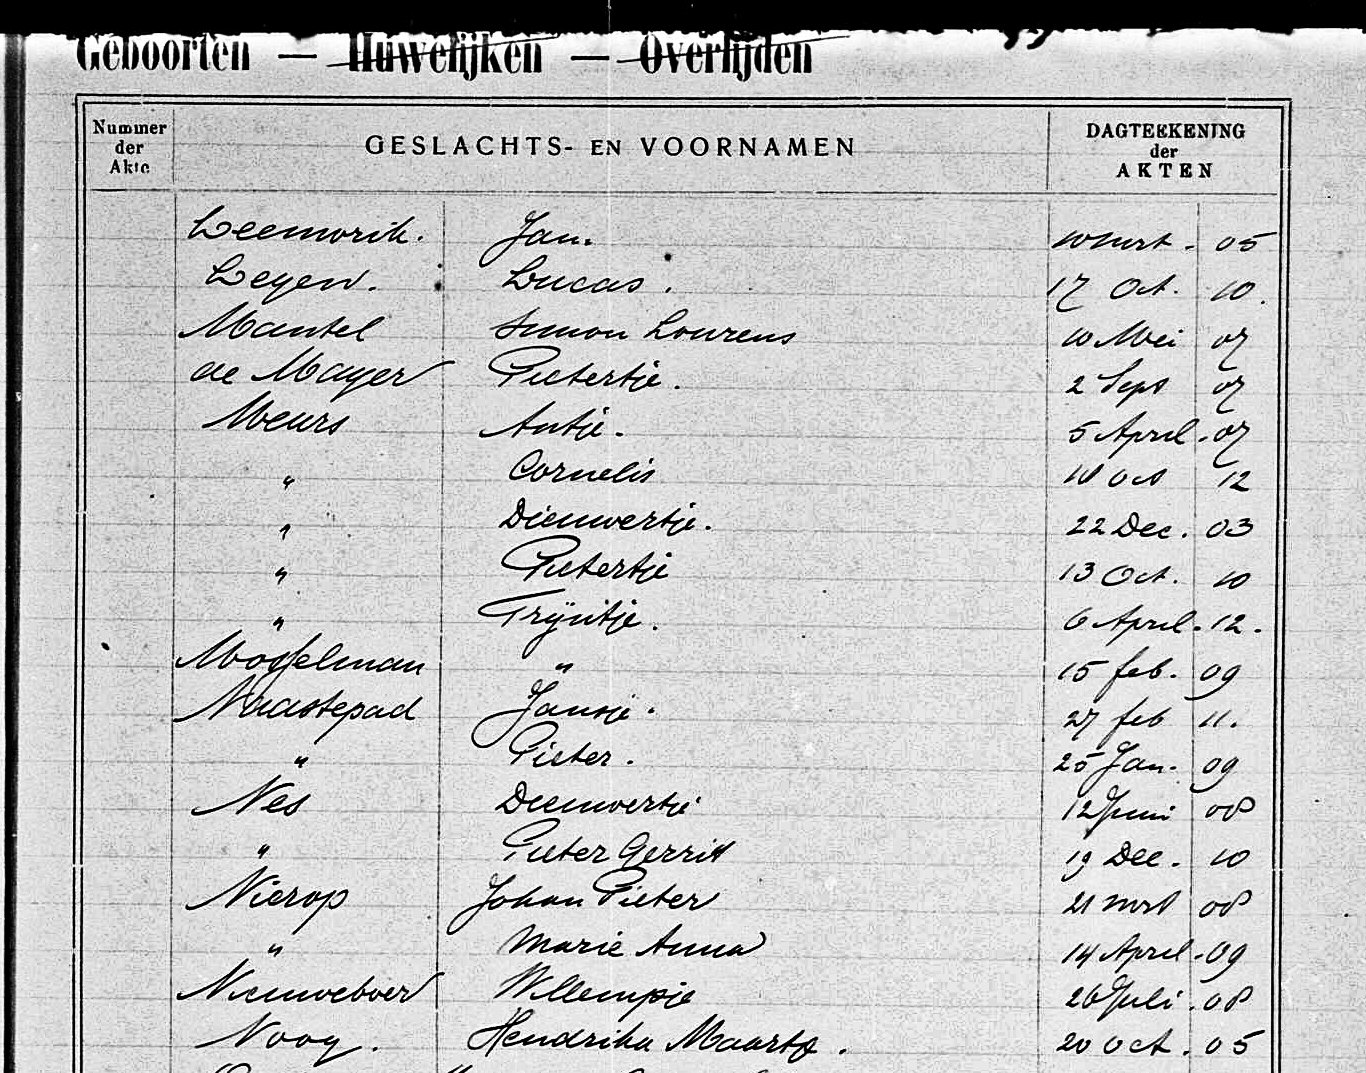 Geboorten — Huwelijken — Overlijden
Nummer der Akte
GESLACHTS- EN VOORNAMEN
DAGTEEKENING der AKTEN
Leemorik. Jan. 10 mrt. 05
Leyen. Lucas. 17 Oct. 10.
Mantel Simon Lourens 10 Mei 07
de Mayer Pietertje. 2 Sept 07
Meurs Antje. 5 April. 07
" Cornelis 18 Oct 12
" Dieuwertje. 22 Dec. 03
" Pietertje 13 Oct. 10
" Trijntje. 6 April. 12.
Mosselman " 15 feb. 09
Naastepad Jansje. 27 feb 11.
" Pieter. 25 Jan. 09
Nes Dieuwertje 12 Juni 08
" Pieter Gerrit 19 Dec. 10
Nierop Johan Pieter 21 mrt 08
" Marie Anna 14 April. 09
Nieuweboer Willempje 26 Juli. 08
Nooy. Hendrika Maartje. 20 Oct. 05